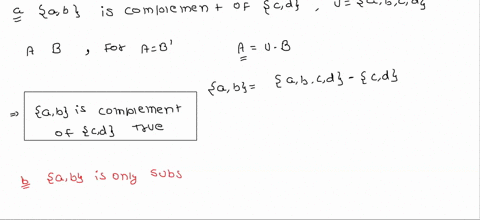 a {a,b} is complement of {c,d}, U={a,b,c,d}
A B , for A=B' A = U-B
{a,b}= {a,b,c,d} - {c,d}
⇒ {a,b} is complement
of {c,d} True
b {a,b} is only subs